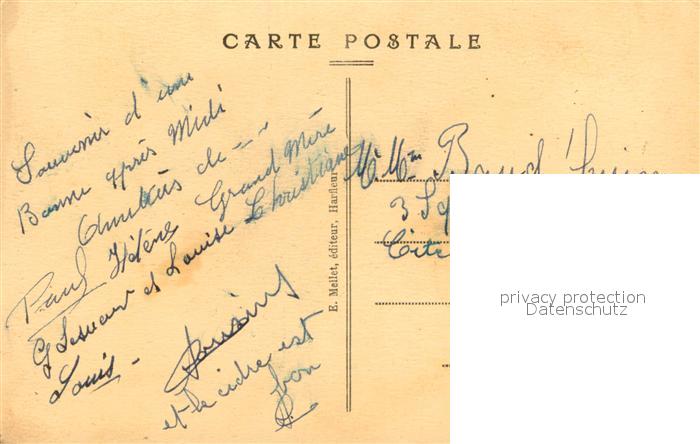 CARTE POSTALE
Souvenir d'une
Bonne après Midi
Amitiés de ---
Paul Hélène Grand Mère
G Lesueur et Louise Christiane
Louis -
et le cidre est
bon
E. Mellet, éditeur, Harfleur
M. Mme
3
Cité
privacy protection
Datenschutz